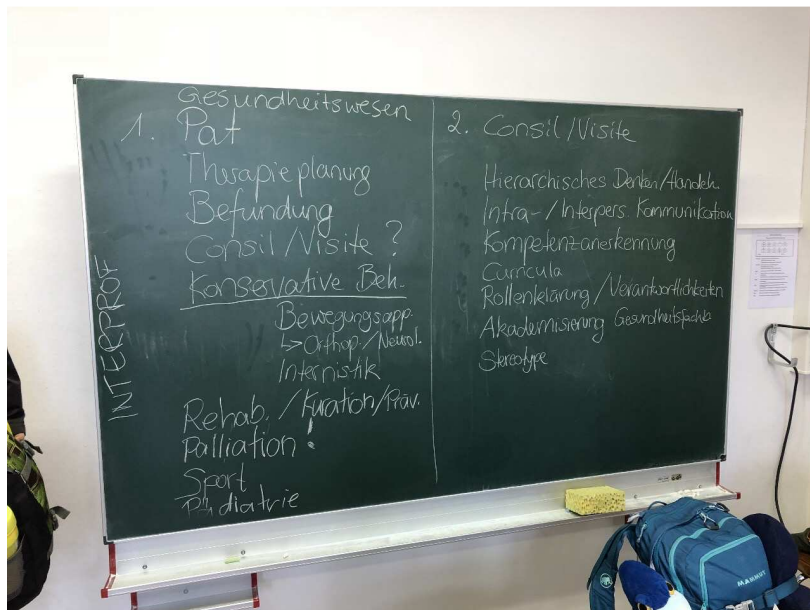 INTERPROF
Gesundheitswesen
1. Pat
Therapieplanung
Befundung
Consil/Visite ?
Konservative Beh.
Bewegungsapp.
↳ Orthop./Neurol.
Internistik
Rehab./Kuration/Präv.
Palliation !
Sport
Pädiatrie
2. Consil/Visite
Hierarchisches Denken/Handeln
Intra-/Interpers Kommunikation
Kompetenzanerkennung
Curricula
Rollenklärung/Verantwortlichkeiten
Akademisierung Gesundheitsfachb.
Stereotype
MAMMUT